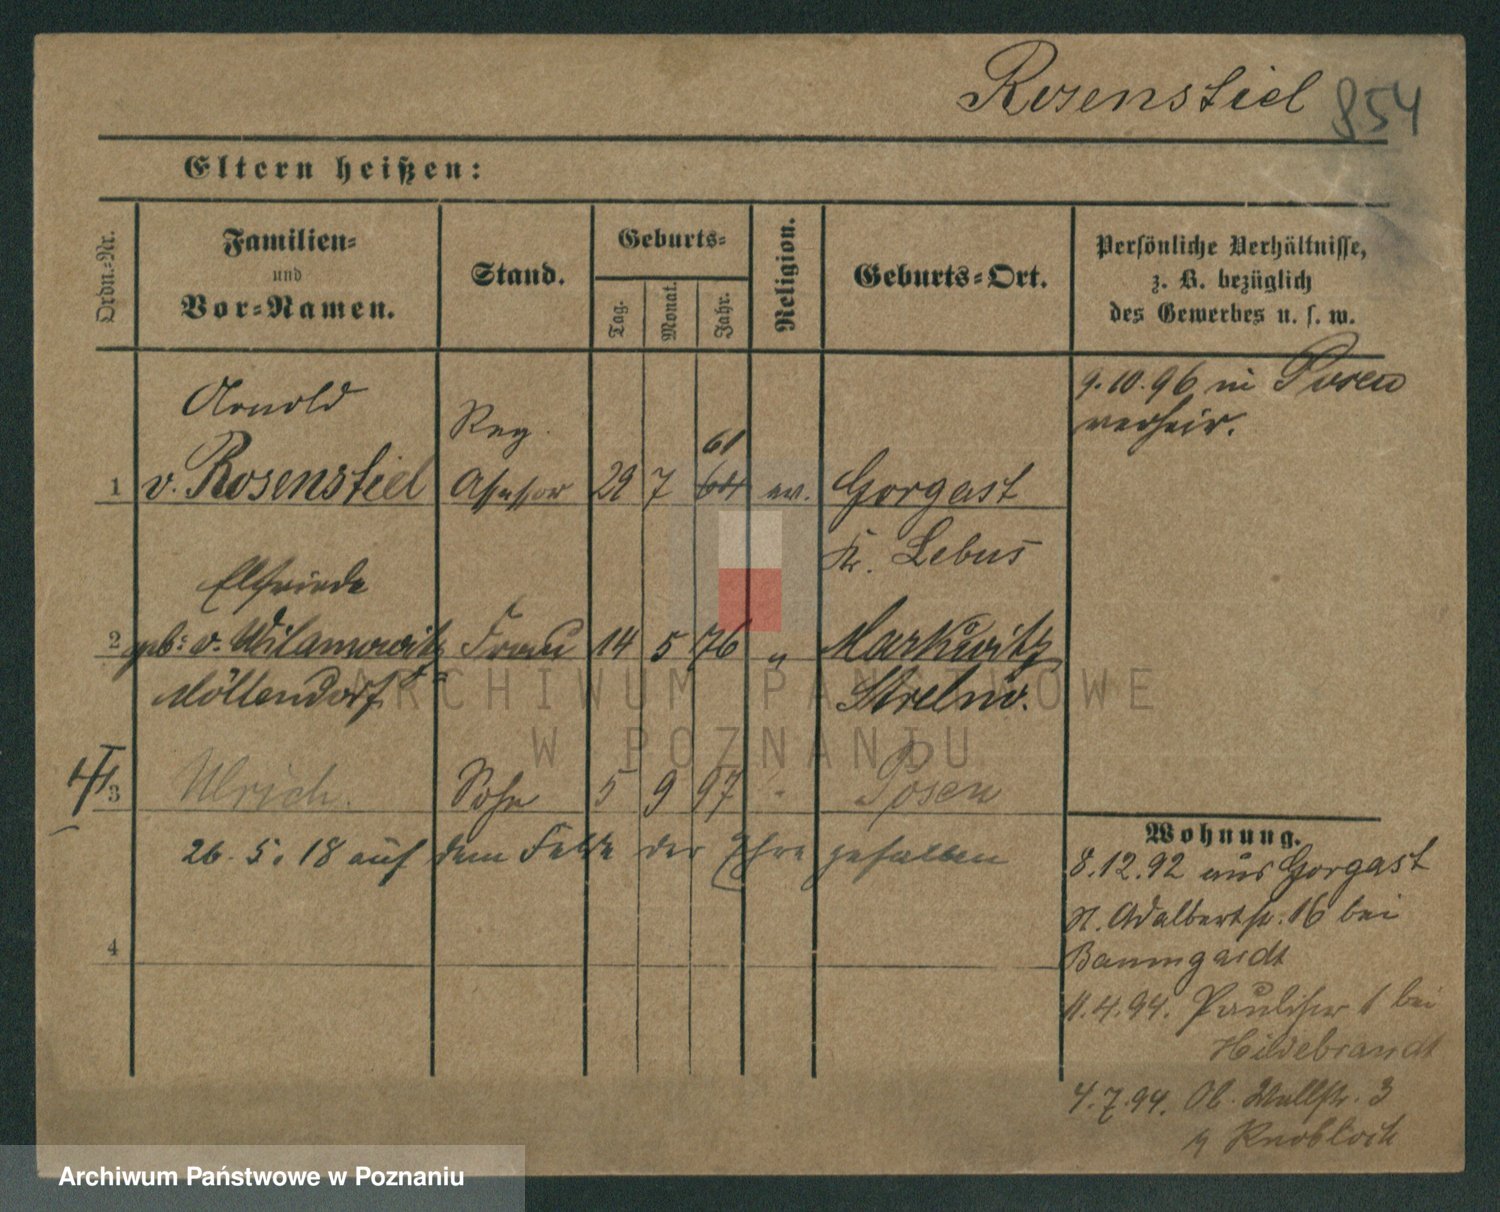 Rosenstiel 854
Eltern heißen:
Ordn.-Nr.
Familien-
und
Vor-Namen.
Stand.
Geburts-
Tag.
Monat.
Jahr.
Religion.
Geburts-Ort.
Persönliche Verhältnisse,
z. B. bezüglich
des Gewerbes u. s. w.
9.10.96 in Posen
verheir.
Arnold Reg. 61
1 v. Rosenstiel Assessor 29 7 64 ev. Gorgast
Kr. Lebus
Elfriede
2 geb: v. Wilamowitz Frau 14 5 76 " Markowitz
Möllendorf Strelno.
3 Ulrich. Sohn 5 9 97 " Posen
26. 5. 18 auf dem Felde der Ehre gefallen
4
Wohnung.
8.12.92 aus Gorgast
N. Adalbertstr. 16 bei
Baumgardt
11.4.94. Paulistr 1 bei
Hildebrandt
4.7.94. Ob. Wallstr. 3
Knobloch
ARCHIWUM PAŃSTWOWE
W POZNANIU
Archiwum Państwowe w Poznaniu